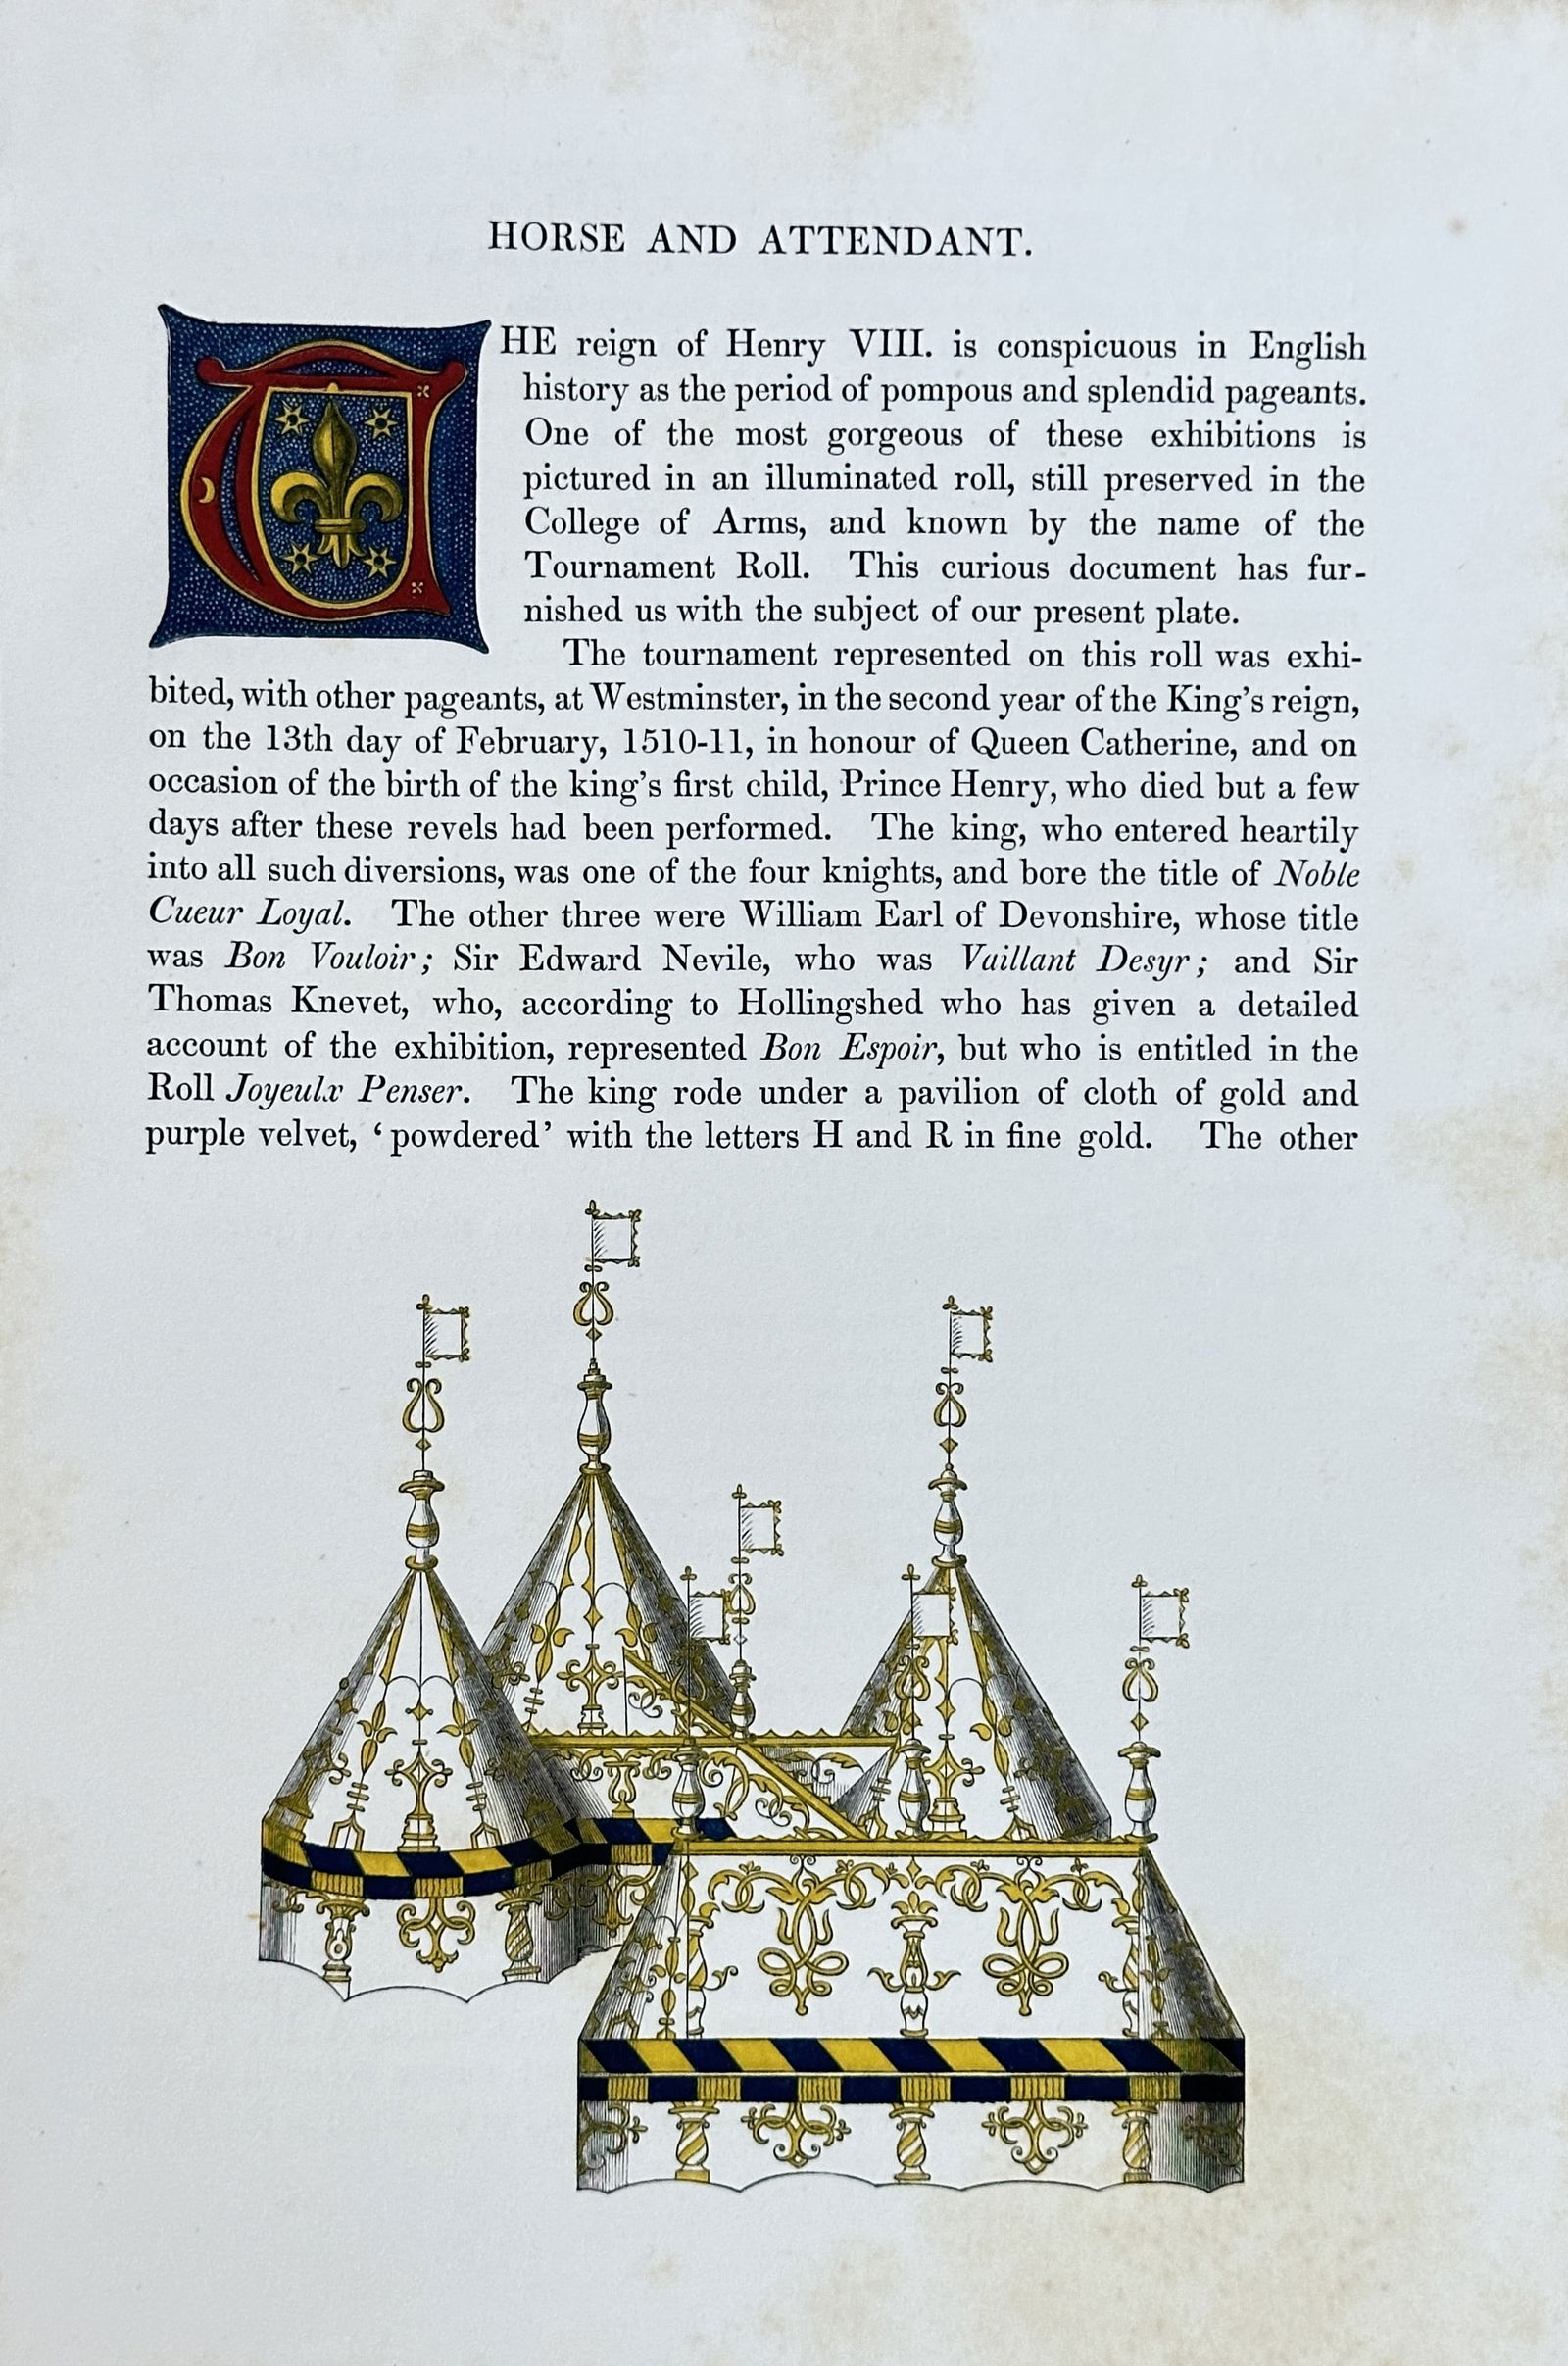 HORSE AND ATTENDANT.
THE reign of Henry VIII. is conspicuous in English
history as the period of pompous and splendid pageants.
One of the most gorgeous of these exhibitions is
pictured in an illuminated roll, still preserved in the
College of Arms, and known by the name of the
Tournament Roll. This curious document has fur-
nished us with the subject of our present plate.
The tournament represented on this roll was exhi-
bited, with other pageants, at Westminster, in the second year of the King's reign,
on the 13th day of February, 1510-11, in honour of Queen Catherine, and on
occasion of the birth of the king's first child, Prince Henry, who died but a few
days after these revels had been performed. The king, who entered heartily
into all such diversions, was one of the four knights, and bore the title of Noble
Cueur Loyal. The other three were William Earl of Devonshire, whose title
was Bon Vouloir; Sir Edward Nevile, who was Vaillant Desyr; and Sir
Thomas Knevet, who, according to Hollingshed who has given a detailed
account of the exhibition, represented Bon Espoir, but who is entitled in the
Roll Joyeulx Penser. The king rode under a pavilion of cloth of gold and
purple velvet, ‘powdered’ with the letters H and R in fine gold. The other